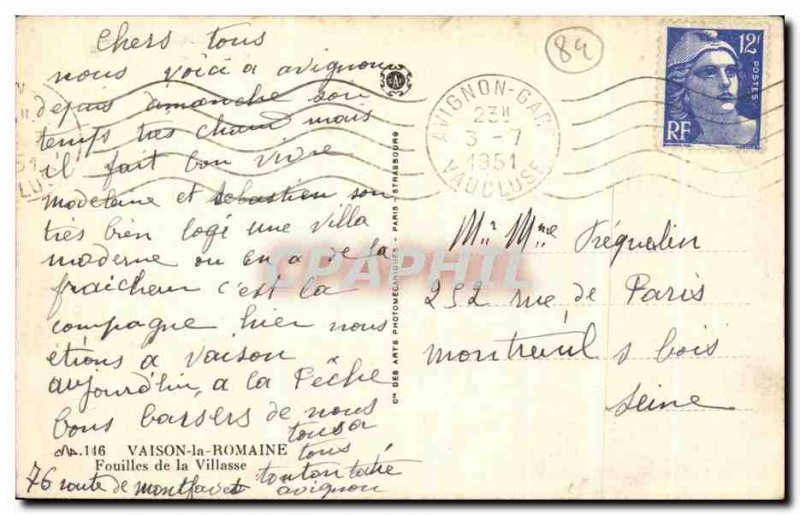 chers tous
nous voici a avignon
depuis dimanche soir
temps tres chaud mais
il fait bon vivre
modeleine et sebastien son
très bien logé une villa
moderne ou en a de la
fraicheur c'est la
compagne hier nous
étions a Vaison
aujourd'hui a la Pêche
bons baisers de nous
tous a
tous
tonton tatie
76 route de montfavet avignon
A. 146 VAISON-la-ROMAINE
Fouilles de la Villasse
Cie DES ARTS PHOTOMECANIQUES - PARIS - STRASBOURG
84
AVIGNON-GARE
23H
3 - 7
1951
VAUCLUSE
12F
POSTES
RF
Mr Mme Fréquelin
252 rue de Paris
montreuil s bois
Seine
CPAPHIL